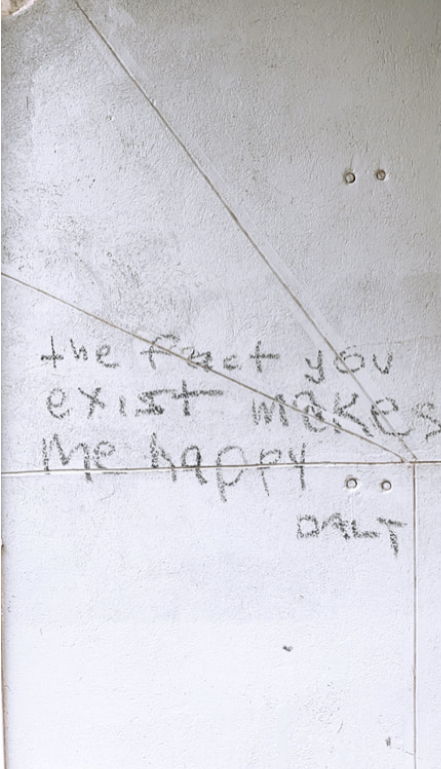 the fact you
exist makes
Me happy
DALT